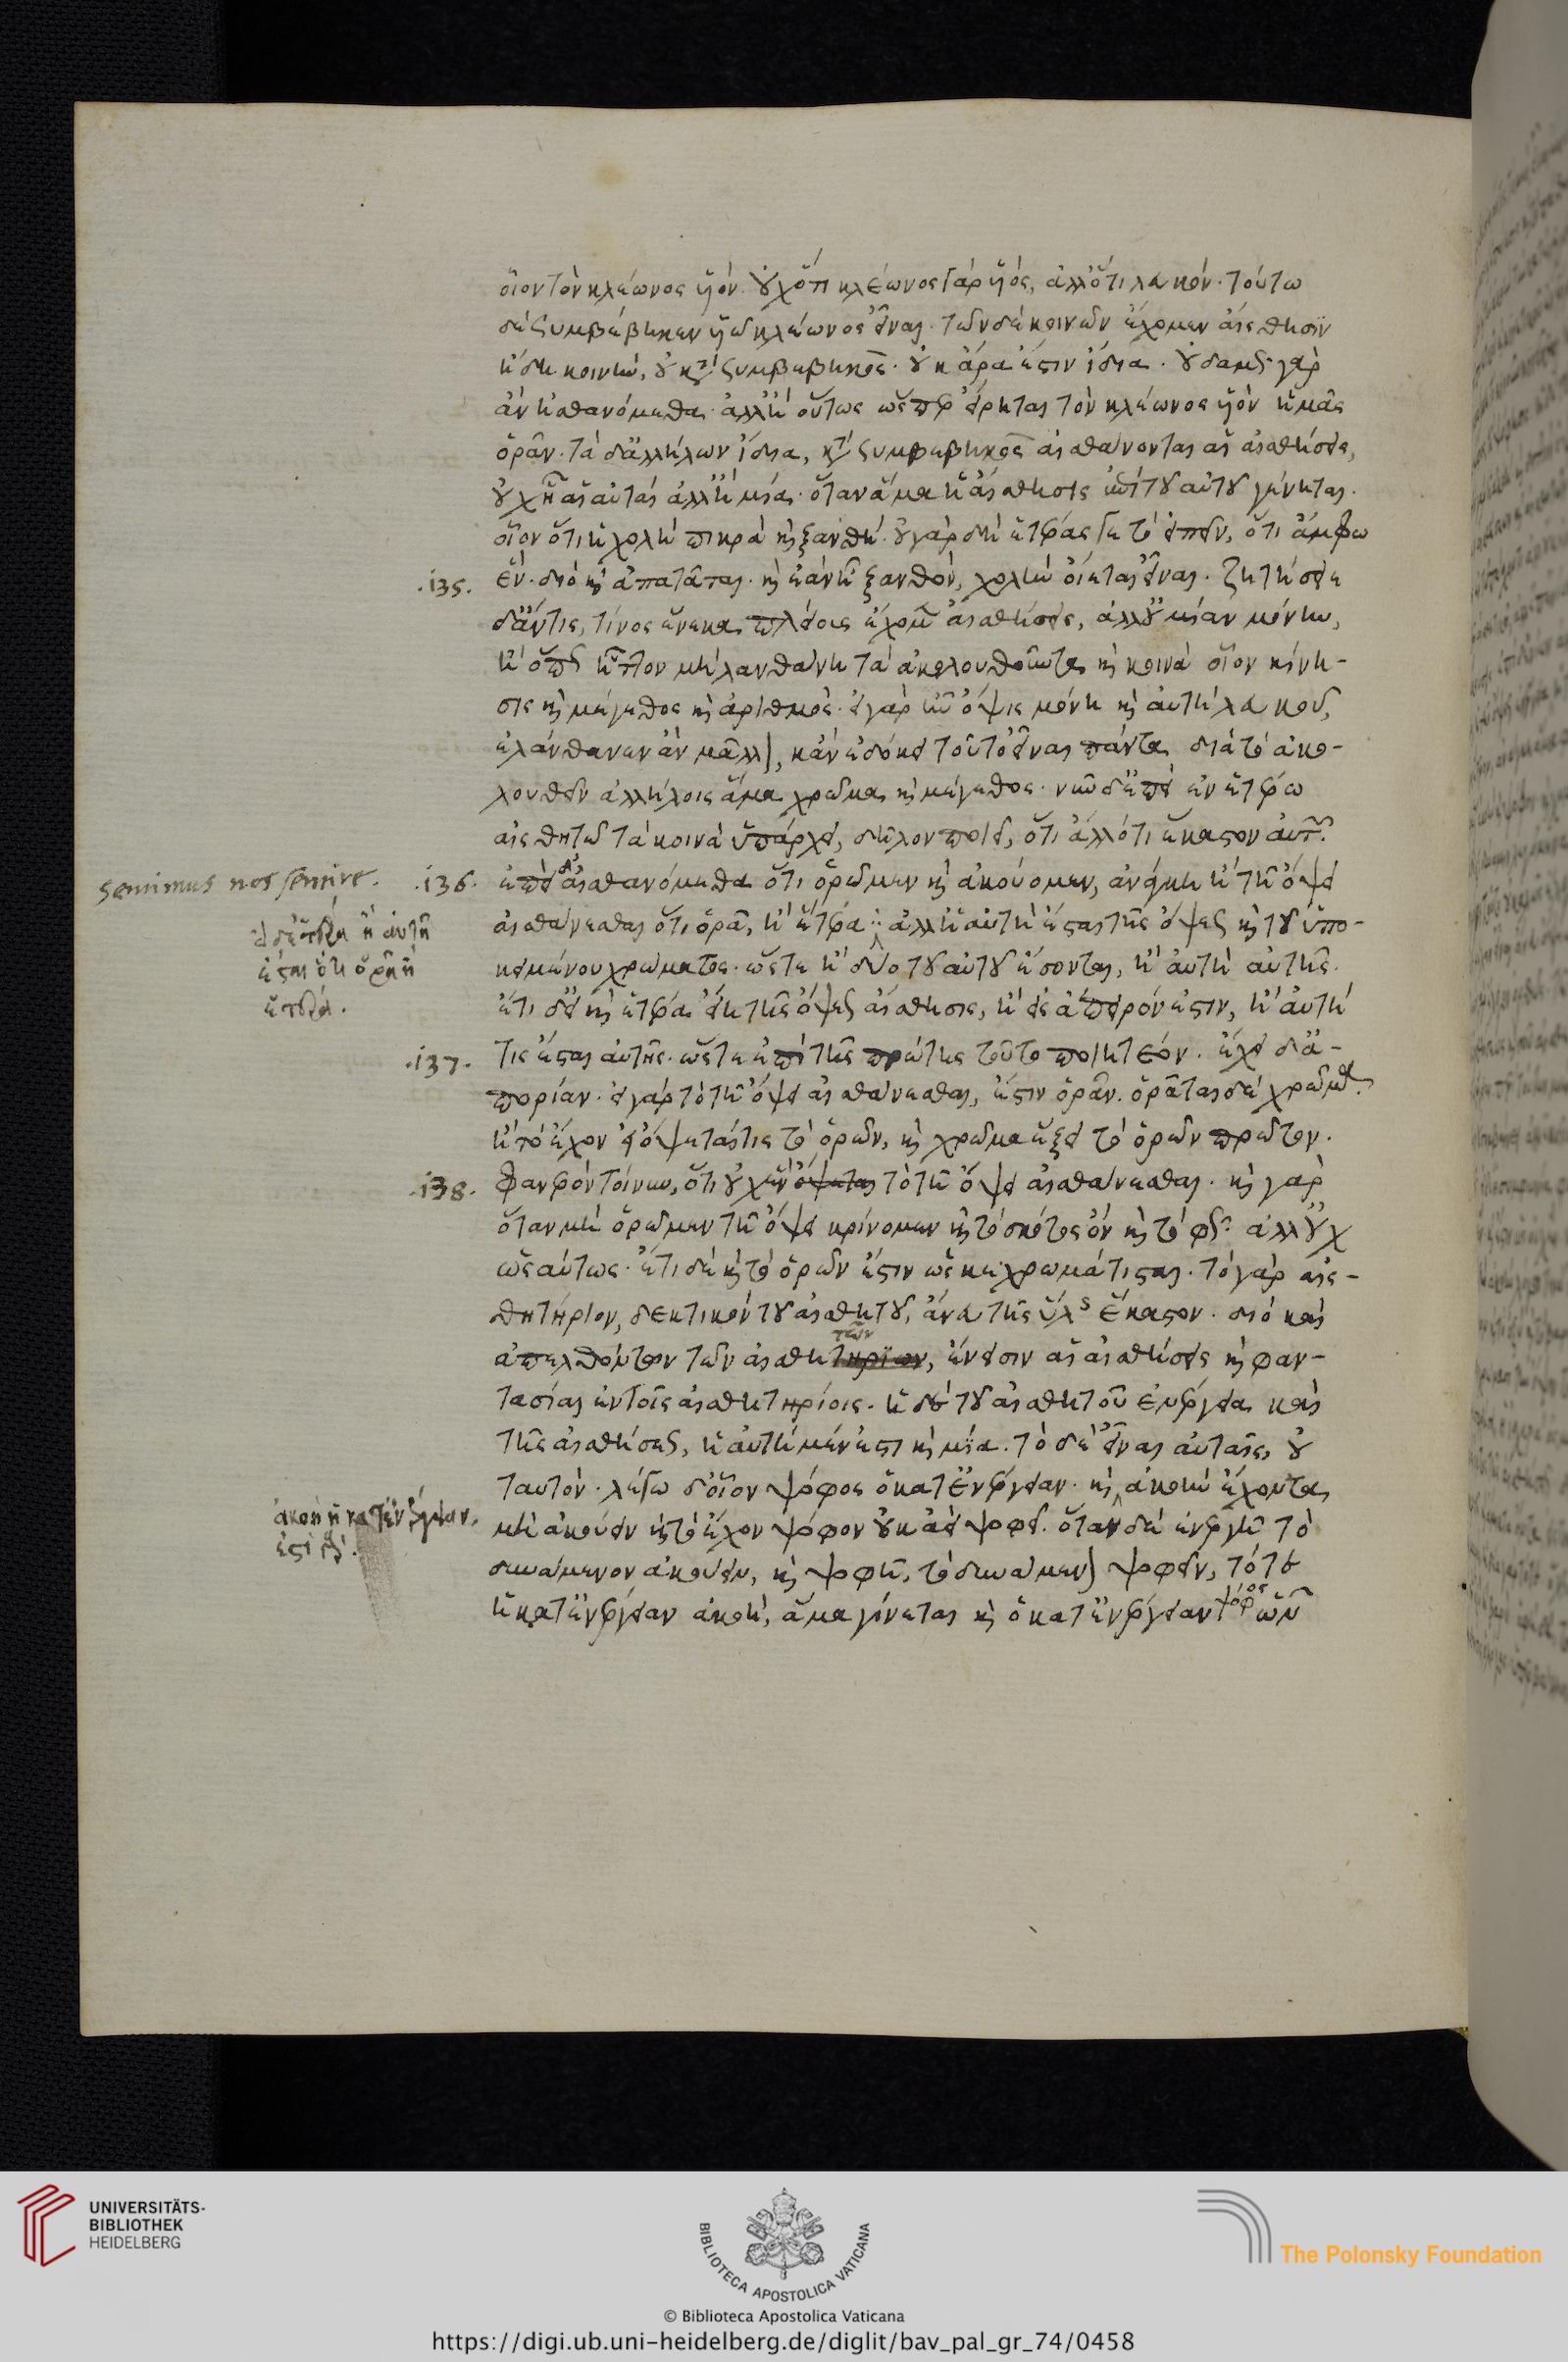 οἷον τὸν κλέωνος υἱόν· οὐχ ὅτι κλέωνος γὰρ υἱός, ἀλλ' ὅτι λευκόν· τούτω
δὲ συμβέβηκεν υἱῶ κλέωνος εἶναι· τῶν δὲ κοινῶν ἔχομεν αἴσθησϊν
ἤδη κοινὴν, οὐ κατὰ συμβεβηκός· οὐκ ἄρα ἐστὶν ἰδία· οὐδαμῶς γὰρ
ἂν ἠσθανόμεθα· ἀλλ' ἢ οὕτως ὥσπερ εἴρηται τὸν κλέωνος υἱὸν ἡμᾶς
ὁρᾶν· τὰ δ' ἀλλήλων ἴδια, κατὰ συμβεβηκὸς αἰσθάνονται αἱ αἰσθήσεις,
οὐχ ἧ αἱ αὐταὶ ἀλλ' ἧ μία· ὅταν ἅμα ἡ αἴσθησις ἐπὶ τοῦ αὐτοῦ γένηται·
οἷον ὅτι ἡ χολὴ πικρὰ καὶ ξανθή· οὐ γὰρ δὴ ἑτέρας γε τὸ εἰπεῖν, ὅτι ἄμφω
·135· ἕν· διὸ καὶ ἀπατᾶται· καὶ ἐὰν ἦ ξανθὸν, χολὴν οἴεται εἶναι· ζητήσειε
δ' ἄν τις, τίνος ἕνεκα πλείους ἔχομεν αἰσθήσεις, ἀλλ' οὐ μίαν μόνην,
ἢ ὅπως ἧττον μὴ λανθάνη τὰ ἀκολουθοῦντα καὶ κοινὰ οἷον κίνη-
σις καὶ μέγεθος καὶ ἀριθμός· εἰ γὰρ ἦν ὄψις μόνη καὶ αὐτὴ λευκοῦ,
ἐλάνθανεν ἂν μᾶλλον, κἂν ἐδόκει τοῦτὸ εἶναι πάντα διὰ τὸ ἀκο-
λουθεῖν ἀλλήλοις ἅμα χρῶμα καὶ μέγεθος· νῦν δ' ἐπεὶ ἐν ἑτέρω
αἰσθητῶ τὰ κοινὰ ὑπάρχει, δῆλον ποιεῖ, ὅτι ἄλλό τι ἕκαστον αὐτῶν·
sentimus nos sentire. ·136· ἐπεὶ δ' αἰσθανόμεθα ὅτι ὁρῶμεν καὶ ἀκούομεν, ἀνάγκη ἢ τῆ ὄψει
αἰσθάνεσθαι ὅτι ὁρᾶ, ἢ ἑτέρα· ἀλλ' ἡ αὐτὴ ἔσται τῆς ὄψεως καὶ τοῦ ὑπο-
κειμένου χρώματος· ὥστε ἢ δύο τοῦ αὐτοῦ ἔσονται, ἢ αὐτὴ αὑτῆς·
ἔτι δ' εἰ καὶ ἑτέρα εἴη τῆς ὄψεως αἴσθησις, ἢ εἰς ἄπειρόν ἐστιν, ἢ αὐτή
·137· τις ἔσται αὑτῆς· ὥστε ἐπὶ τῆς πρώτης τοῦτο ποιητέον· ἔχει δ' ἀ-
πορίαν· εἰ γὰρ τὸ τῆ ὄψει αἰσθάνεσθαι, ἐστὶν ὁρᾶν· ὁρᾶται δὲ χρῶμα
ἢ τὸ ἔχον εἰ ὄψεταί τις τὸ ὁρῶν, καὶ χρῶμα ἕξει τὸ ὁρῶν πρῶτον·
·138· φανερὸν τοίνυν, ὅτι οὐχ ἓν ὄψεται τὸ τῆ ὄψει αἰσθάνεσθαι· καὶ γὰρ
ὅταν μὴ ὁρῶμεν τῆ ὄψει κρίνομεν καὶ τὸ σκότος ὂν καὶ τὸ φῶς· ἀλλ' οὐχ
ὡσαύτως· ἔτι δὲ καὶ τὸ ὁρῶν ἐστιν ὡς κεχρωμάτισται· τὸ γὰρ αἰσ-
θητήριον, δεκτικὸν τοῦ αἰσθητοῦ, ἄνευ τῆς ὕλης ἕκαστον· διὸ καὶ
ἀπελθόντων τῶν αἰσθητηρΐων τῶν, ἔνεισιν αἱ αἰσθήσεις καὶ φαν-
τασίαι ἐν τοῖς αἰσθητηρίοις· ἡ δὲ τοῦ αἰσθητοῦ ἐνέργεια καὶ
τῆς αἰσθήσεως, ἡ αὐτὴ μέν ἐστι καὶ μία· τὸ δὲ εἶναι αὐταῖς, οὐ
ταυτόν· λέγω δ' οἷον ψόφος ὁ κατ' ἐνέργειαν· καὶ ἀκοὴν ἔχοντα
ἀκοὴ ἡ κατ' ἐνέργειαν. μὴ ἀκούειν καὶ τὸ ἔχον ψόφον οὐκ ἀεὶ ψοφεῖ· ὅταν δὲ ἐνεργῆ τὸ
δυνάμενον ἀκούειν, καὶ ψοφῆ, τὸ δυνάμενον ψοφεῖν, τότε
ἡ κατ' ἐνέργειαν ἀκοὴ, ἅμα γίνεται καὶ ὁ κατ' ἐνέργειαν ψόφος ὧν
UNIVERSITÄTS-
BIBLIOTHEK
HEIDELBERG
BIBLIOTECA APOSTOLICA VATICANA
The Polonsky Foundation
© Biblioteca Apostolica Vaticana
https://digi.ub.uni-heidelberg.de/diglit/bav_pal_gr_74/0458